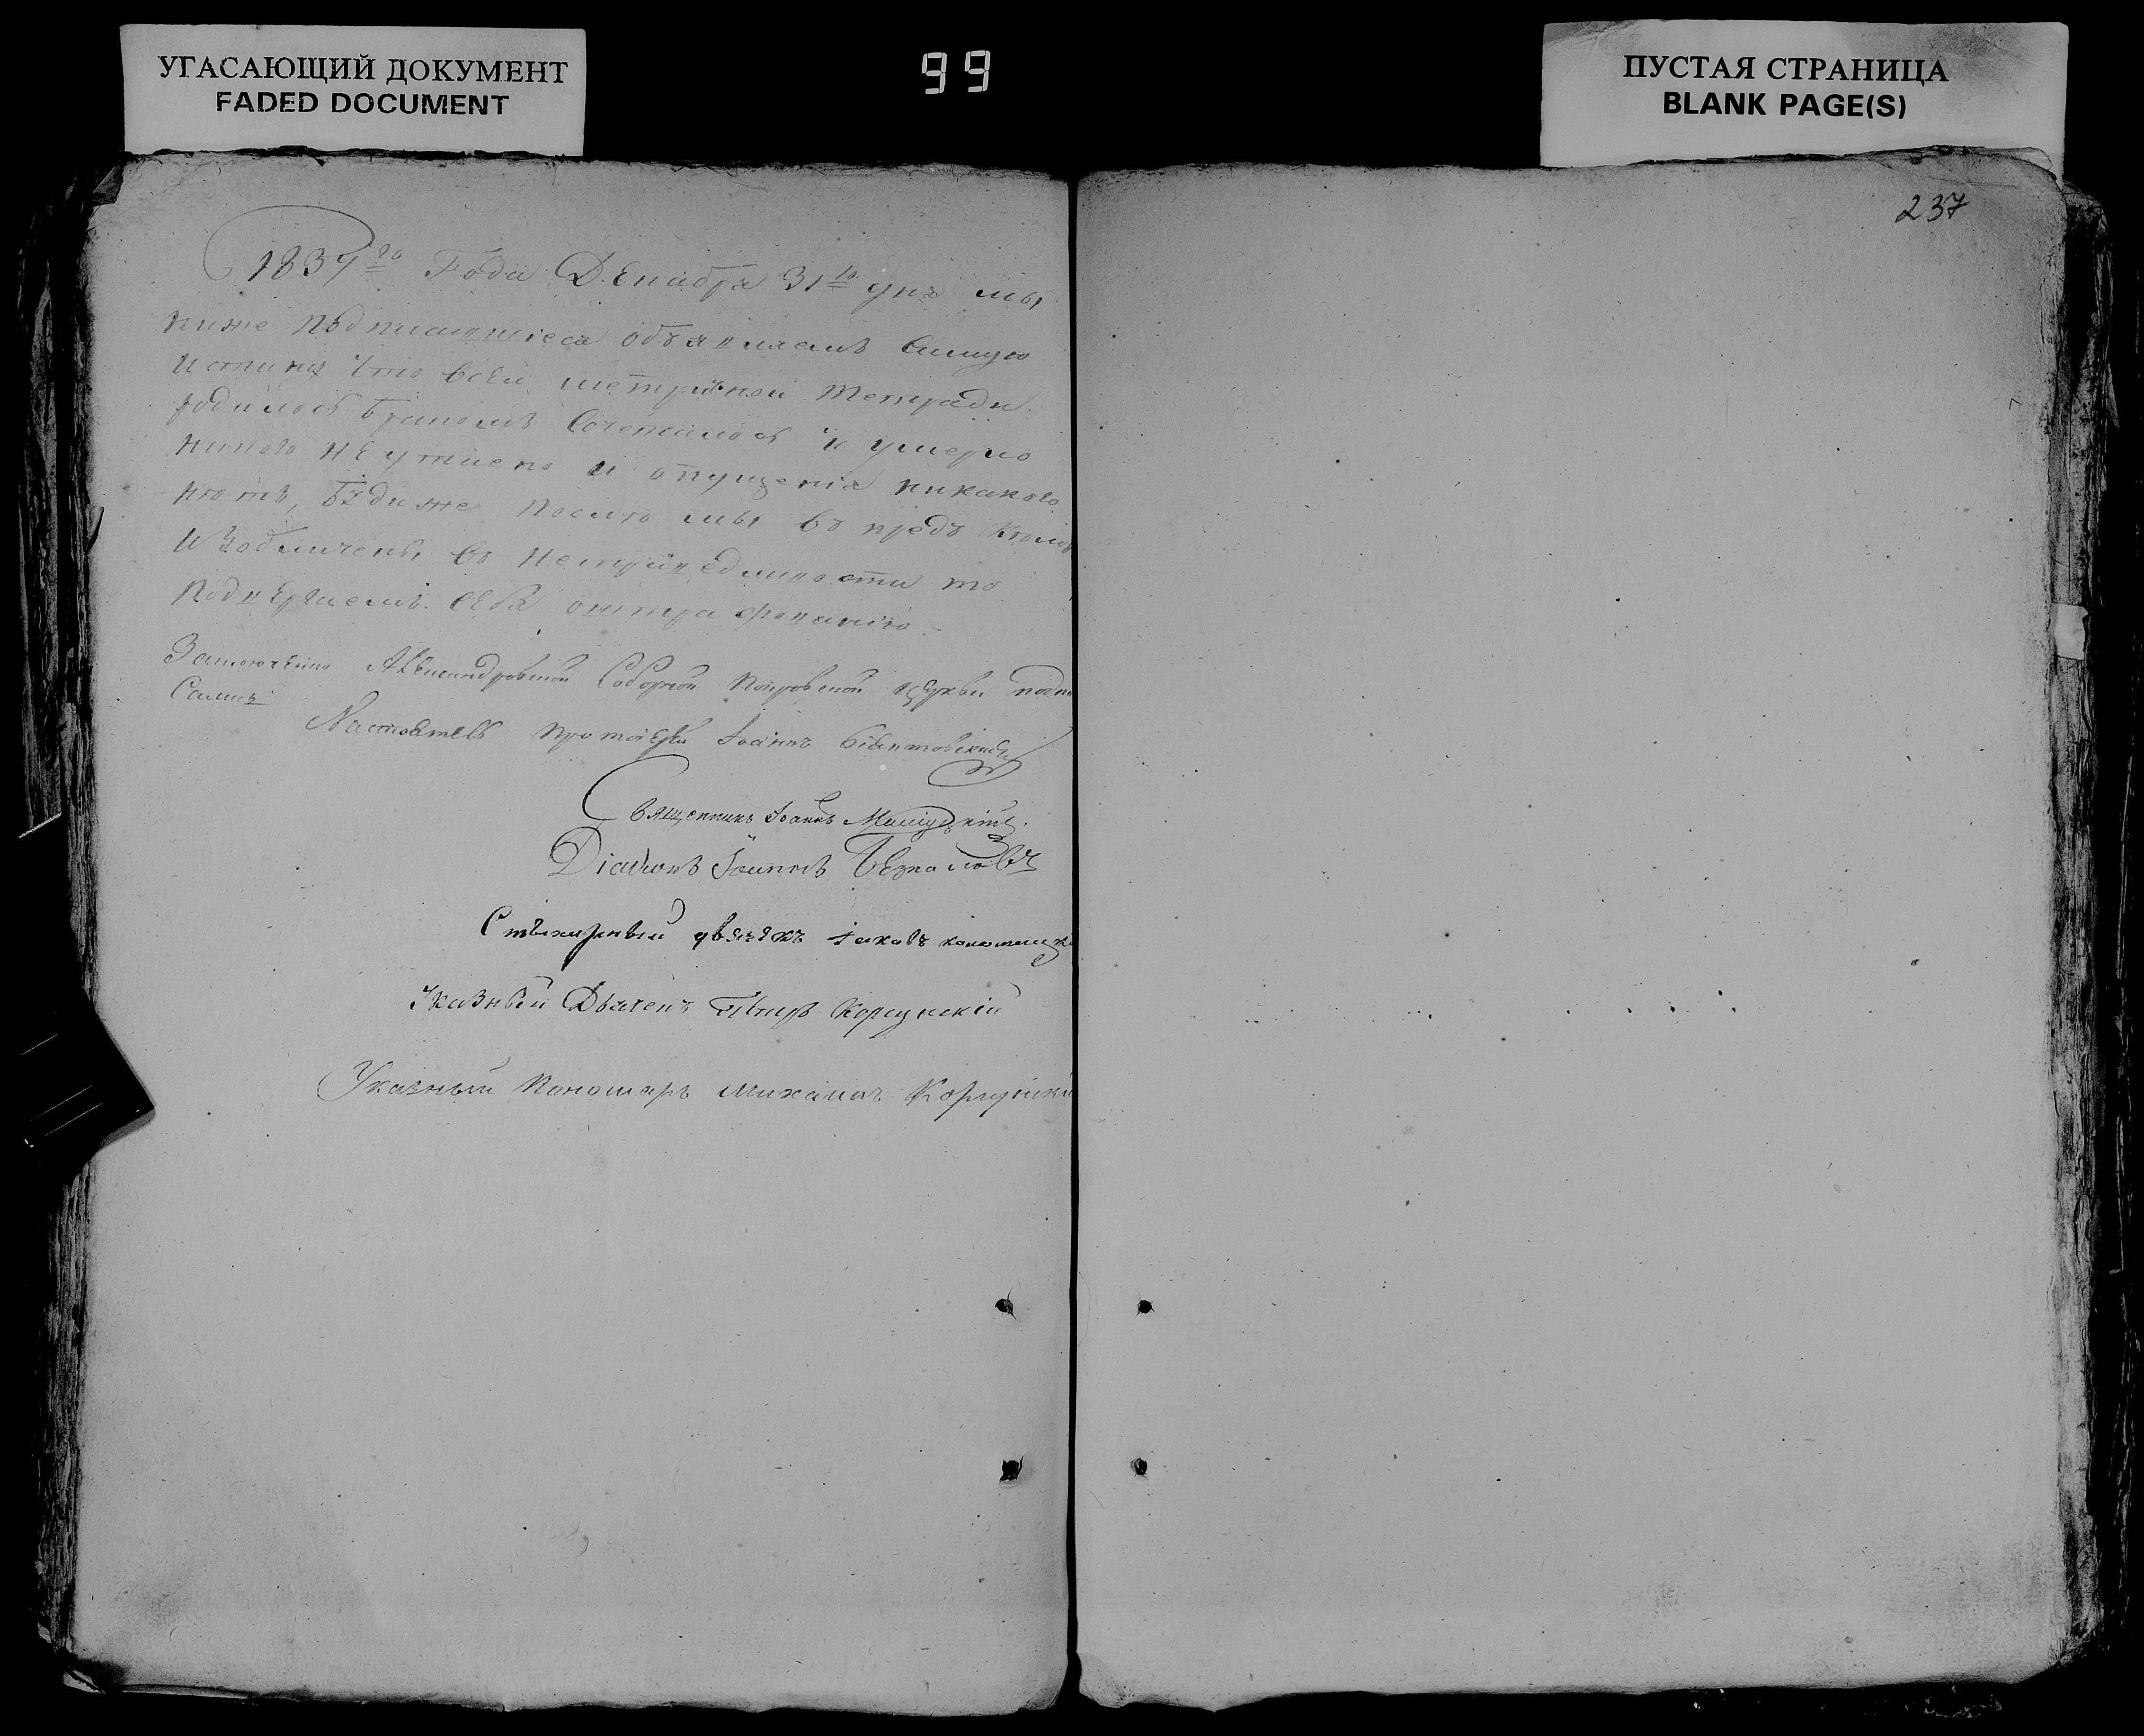 УГАСАЮЩИЙ ДОКУМЕНТ
FADED DOCUMENT
99
ПУСТАЯ СТРАНИЦА
BLANK PAGE(S)
237
1837го Года Декабря 31го дня мы
ниже подписавшіеся объявляемъ самую
истину что въ сей метричной тетради
родилось бракомъ сочеталось и умерло
никого не утаено и опущенія никакого
нетъ, буди же после мы въ предь кемъ
изобличены въ несправедливости то
подвергаемъ себя
Александровской Соборной Покровской церкви
Настоятель протоіерей Іоаннъ
Священникъ Іоаннъ
Діаконъ Іоаннъ
Стихарный дьячекъ Іаковъ
Указный Дьячекъ Петръ Корсунскій
Указный Пономарь Михаилъ